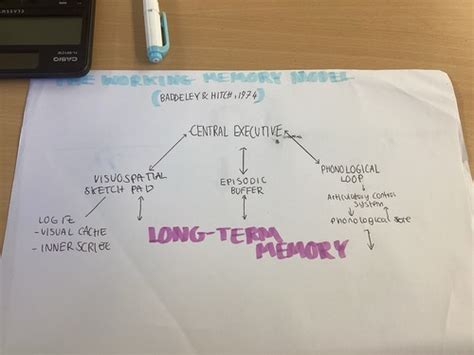 CASIO
THE WORKING MEMORY MODEL
(BADDELEY & HITCH, 1974)
CENTRAL EXECUTIVE
VISUOSPATIAL
SKETCH PAD
EPISODIC
BUFFER
PHONOLOGICAL
LOOP
Articulatory control
system
phonological store
LOGIE
- VISUAL CACHE
- INNER SCRIBE
LONG-TERM
MEMORY